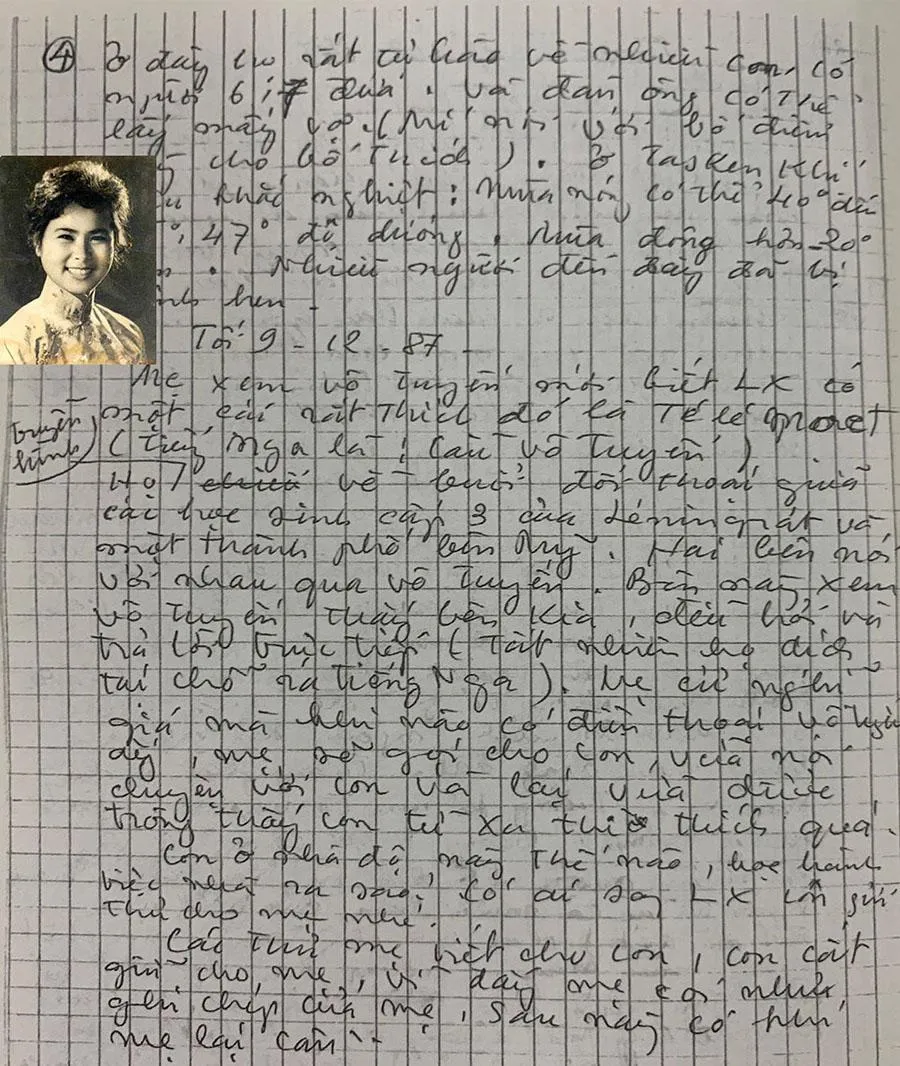 ④ Ở đây họ rất tự hào về nhiều con, có
người 6, 7 đứa. Và đàn ông có thể
lấy mấy vợ. (Mí nói với bố điều
cho bố thích). Ở Tasken khí
khắc nghiệt: Mùa nóng có thể 40° đến
47° độ dương. Mùa đông hơn -20°
. Nhiều người đến đây đã bị
hen.
Tối 9-12-87
Mẹ xem vô tuyến mới biết LX có
một cái rất thích đó là Tê lê moct
truyền hình
(tiếng Nga là: Cầu vô tuyến)
Họ về buổi đối thoại giữa
các học sinh cấp 3 của Lêningrát và
một thành phố bên Mỹ. Hai bên nói
với nhau qua vô tuyến. Bên này xem
vô tuyến thấy bên kia, đều hỏi và
trả lời trực tiếp (tất nhiên họ dịch
tại chỗ ra tiếng Nga). Mẹ cứ nghĩ
giá mà khi nào có điện thoại vô tuyến
đấy, mẹ sẽ gọi cho con, vừa nói
chuyện với con và lại vừa được
trông thấy con từ xa thì thích quá.
Con ở nhà độ này thế nào, học hành
việc nhà ra sao? Có ai sang LX con gửi
thư cho mẹ nhé.
Các thư mẹ viết cho con, con cất
giữ cho mẹ, vì đấy mẹ coi như
ghi chép của mẹ, sau này có khi
mẹ lại cần.